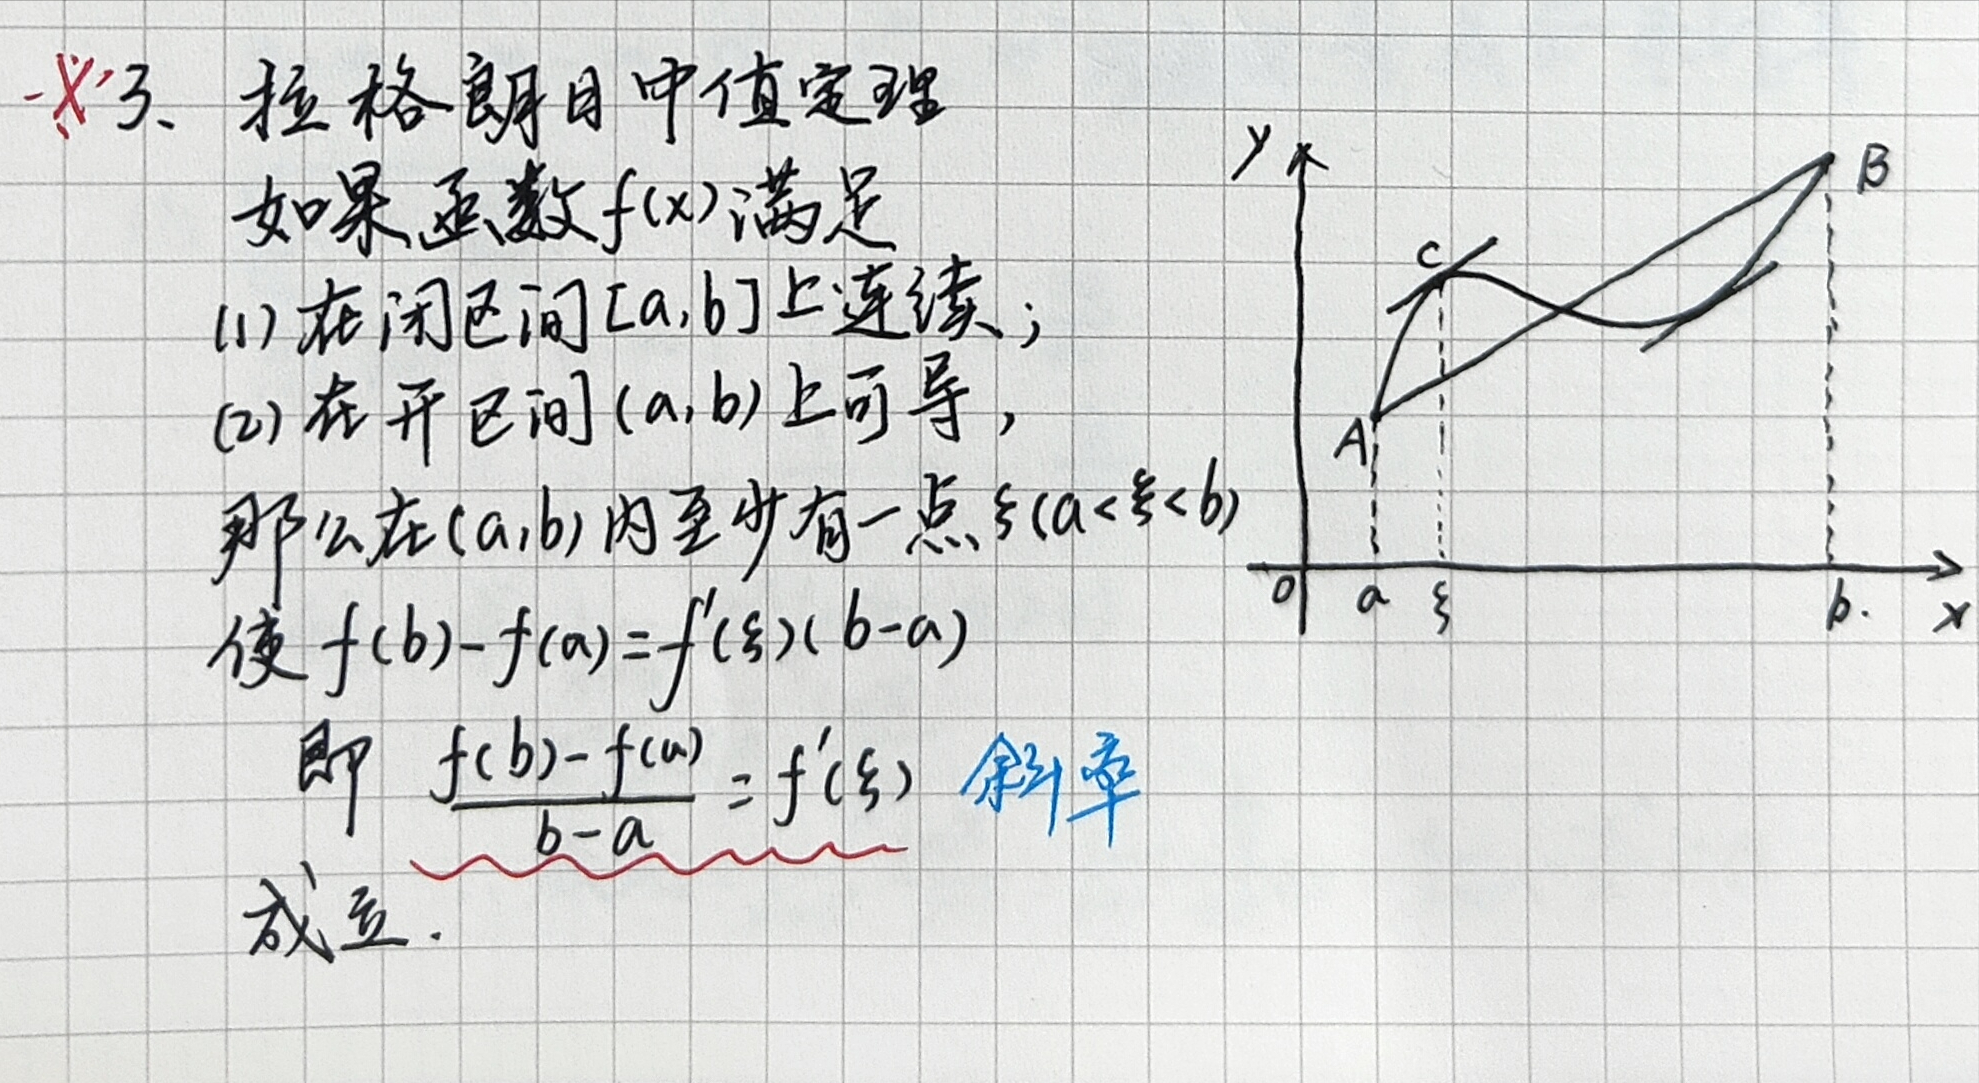 ※3、拉格朗日中值定理
如果函数f(x)满足
(1)在闭区间[a,b]上连续;
(2)在开区间(a,b)上可导,
那么在(a,b)内至少有一点ξ(a<ξ<b)
使 f(b)-f(a)=f'(ξ)(b-a)
即 \frac{f(b)-f(a)}{b-a} = f'(ξ) 斜率
成立.
y
B
C
A
0 a ξ b. x